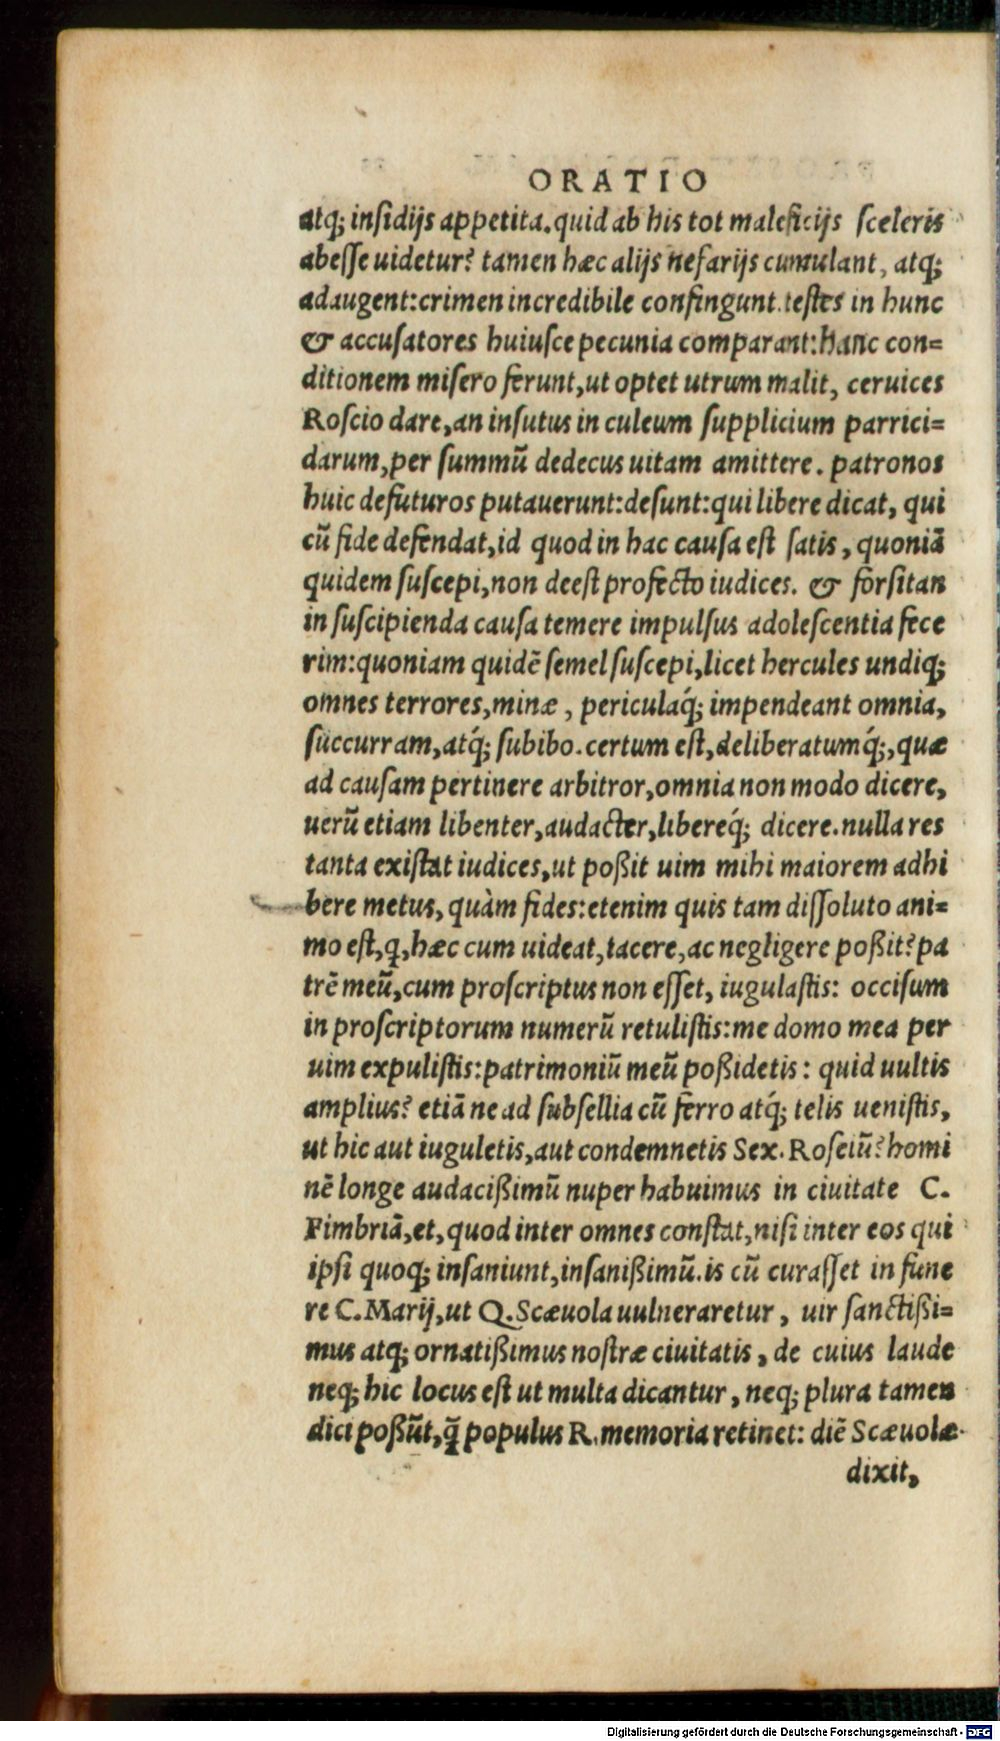 ORATIO
atq; insidijs appetita. quid ab his tot maleficijs sceleris
abesse uidetur? tamen hæc alijs nefarijs cumulant, atq;
adaugent: crimen incredibile confingunt. testes in hunc
& accusatores huiusce pecunia comparant: hanc con=
ditionem misero ferunt, ut optet utrum malit, ceruices
Roscio dare, an insutus in culeum supplicium parrici=
darum, per summū dedecus uitam amittere. patronos
huic defuturos putauerunt: desunt: qui libere dicat, qui
cū fide defendat, id quod in hac causa est satis, quoniā
quidem suscepi, non deest profecto iudices. & forsitan
in suscipienda causa temere impulsus adolescentia fece
rim: quoniam quidē semel suscepi, licet hercules undiq;
omnes terrores, minæ, periculaq́; impendeant omnia,
succurram, atq́; subibo. certum est, deliberatumq́;, quæ
ad causam pertinere arbitror, omnia non modo dicere,
uerū etiam libenter, audacter, libereq́; dicere. nulla res
tanta existat iudices, ut poßit uim mihi maiorem adhi
bere metus, quàm fides: etenim quis tam dissoluto ani=
mo est, q, hæc cum uideat, tacere, ac negligere poßit? pa
trē meū, cum proscriptus non esset, iugulastis: occisum
in proscriptorum numerū retulistis: me domo mea per
uim expulistis: patrimoniū meū poßidetis: quid uultis
amplius? etiā ne ad subsellia cū ferro atq́; telis uenistis,
ut hic aut iuguletis, aut condemnetis Sex. Rosciū? homi
nē longe audacißimū nuper habuimus in ciuitate C.
Fimbriā, et, quod inter omnes constat, nisi inter eos qui
ipsi quoq; insaniunt, insanißimū. is cū curasset in fune
re C. Marij, ut Q. Scæuola uulneraretur, uir sanctißi=
mus atq; ornatißimus nostræ ciuitatis, de cuius laude
neq; hic locus est ut multa dicantur, neq; plura tamen
dici poßūt, q̃ populus R. memoria retinet: diē Scæuolæ
dixit,
Digitalisierung gefördert durch die Deutsche Forschungsgemeinschaft - DFG